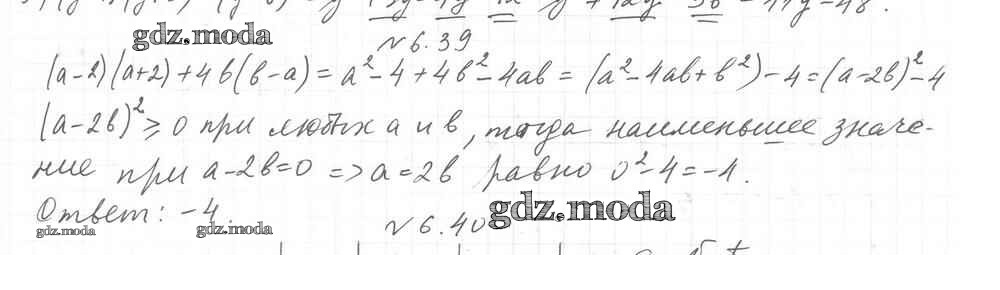 gdz.moda
№ 6.39
(a-2)(a+2)+4b(b-a)=a²-4+4b²-4ab=(a²-4ab+b²)-4=(a-2b)²-4
(a-2b)²≥0 при любых a и b, тогда наименьшее значе-
ние при a-2b=0 => a=2b равно 0²-4=-4.
Ответ: -4
gdz.moda
gdz.moda
№ 6.40
gdz.moda